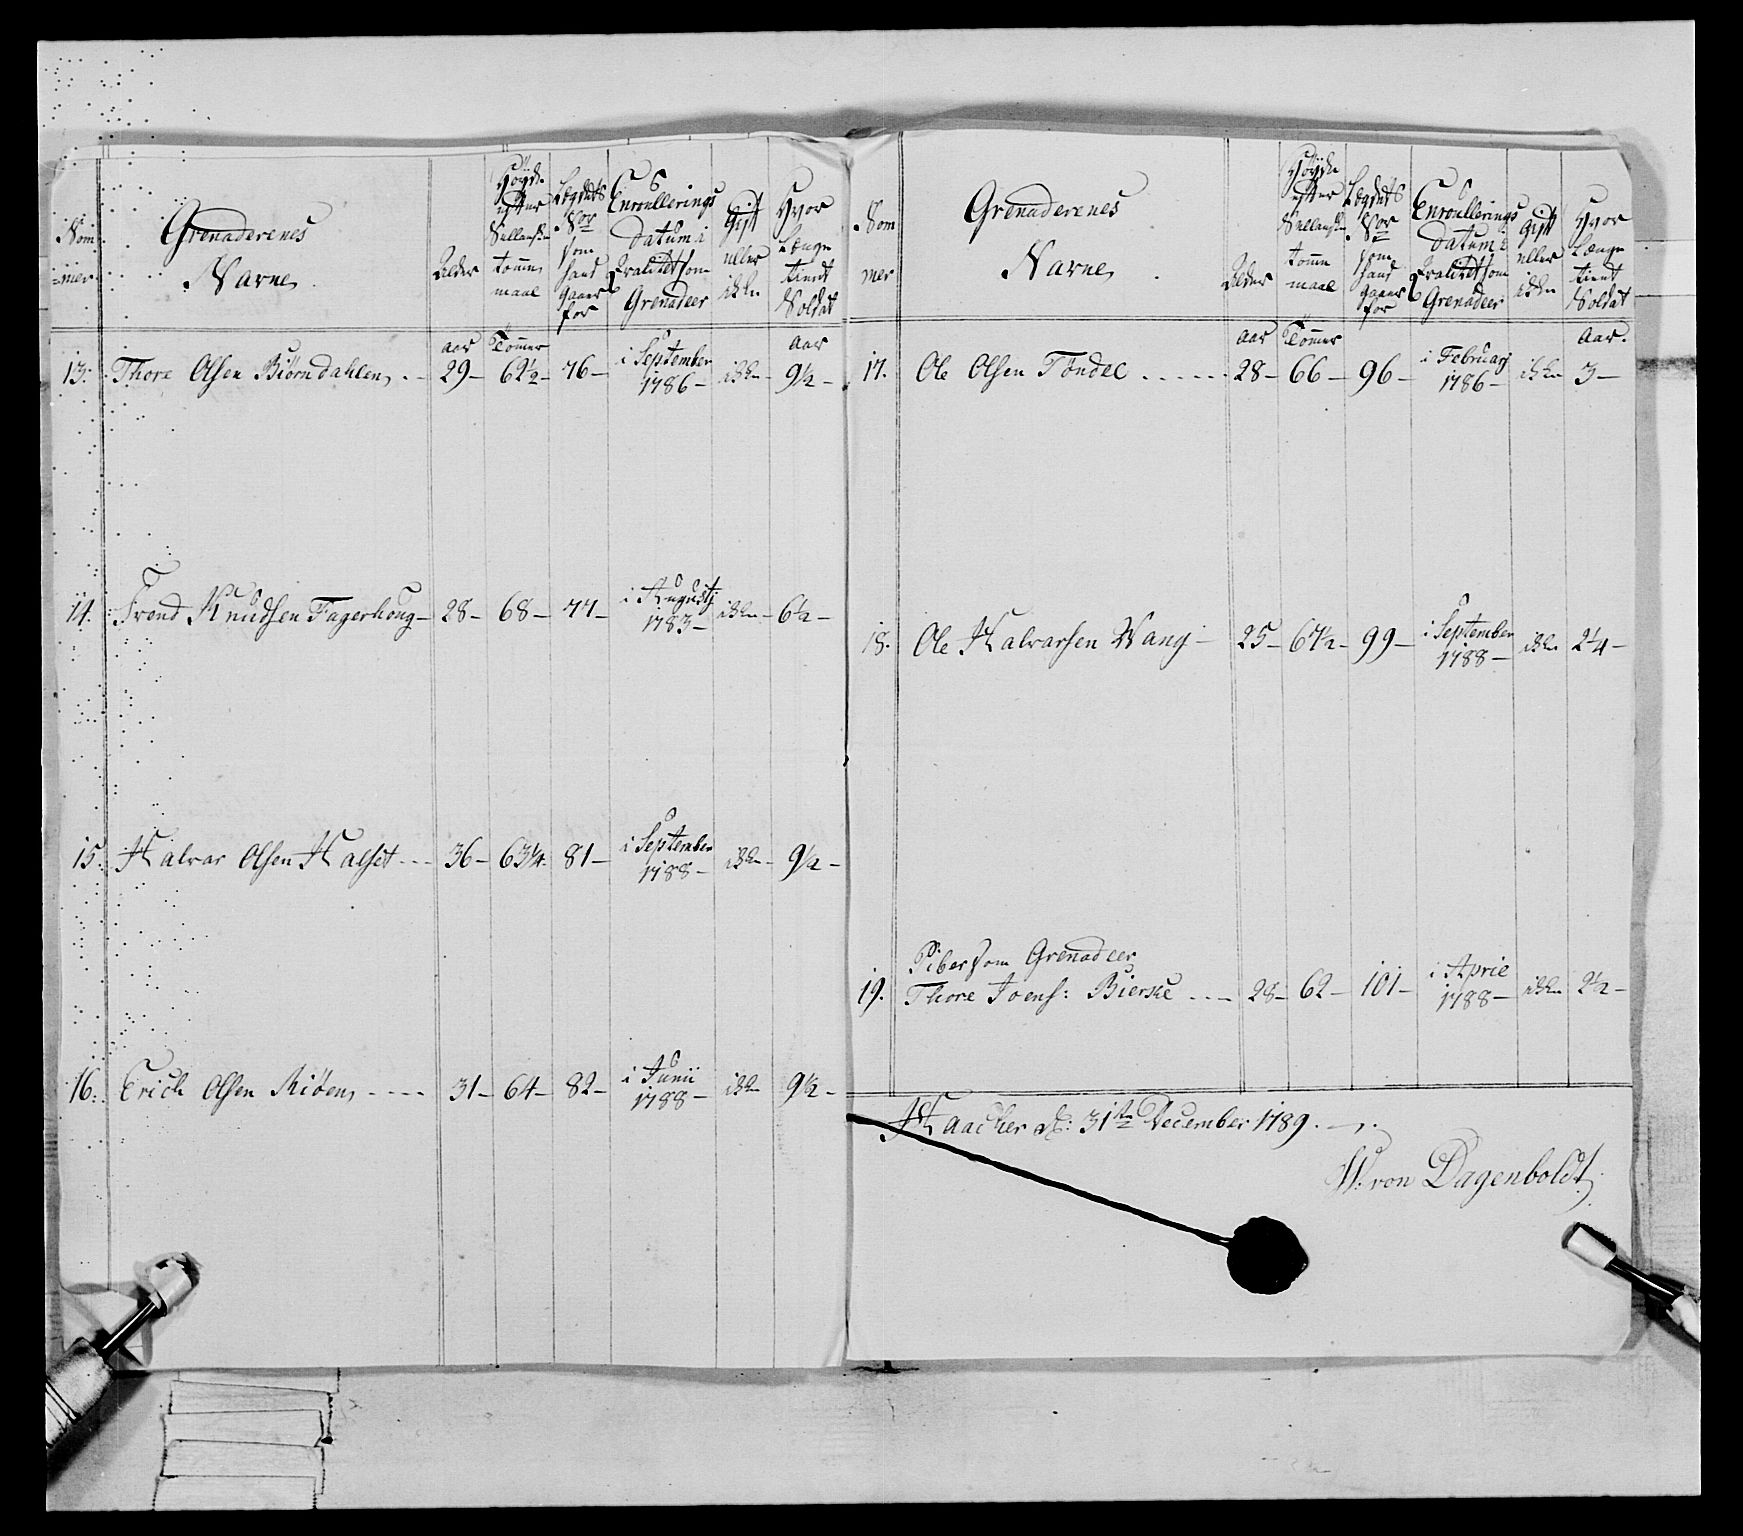 Nom
-mer
Grenaderenes
Navne
Alder
Höyde
efter
Sællandsk
tomme
maal
Lægdets
Nor
som
hand
gaaer
for
Enroullerings
datum i
Qvalitet som
Grenadeer
Gift
eller
ikke
Hvor
Længe
tient
Soldat
aar Tömmer aar
13. Thore Olsen Biörndahlen 29 62½ 76 i September 1786 ikke 9½
14. Trond Knudsen Fagerhoug 28 68 77 i Augustj 1783 ikke 6½
15. Halvar Olsen Halset 36 63¼ 81 i September 1788 ikke 9½
16. Erich Olsen Riöen 31 64 82 i Junii 1788 ikke 9½
Nom
mer
Grenaderenes
Navne
Alder
Höyde
efter
Sællandsk
tomme
maal
Lægdets
Nor
som
hand
gaaer
for
Enroullerings
datum i
Qvalitet som
Grenadeer
Gift
eller
ikke
Hvor
Længe
tient
Soldat
aar Tömmer aar.
17. Ole Olsen Töndel 28 66 96 i Februarj 1786 ikke 3
18. Ole Halvarsen Wang 25 67½ 99 i September 1788 ikke 2¼
Piber som Grenadeer
19. Thore Joens: Bierske 28 62 101 i April 1788 ikke 2½
Haacker d: 31te December 1789.
W: von Dagenboldt